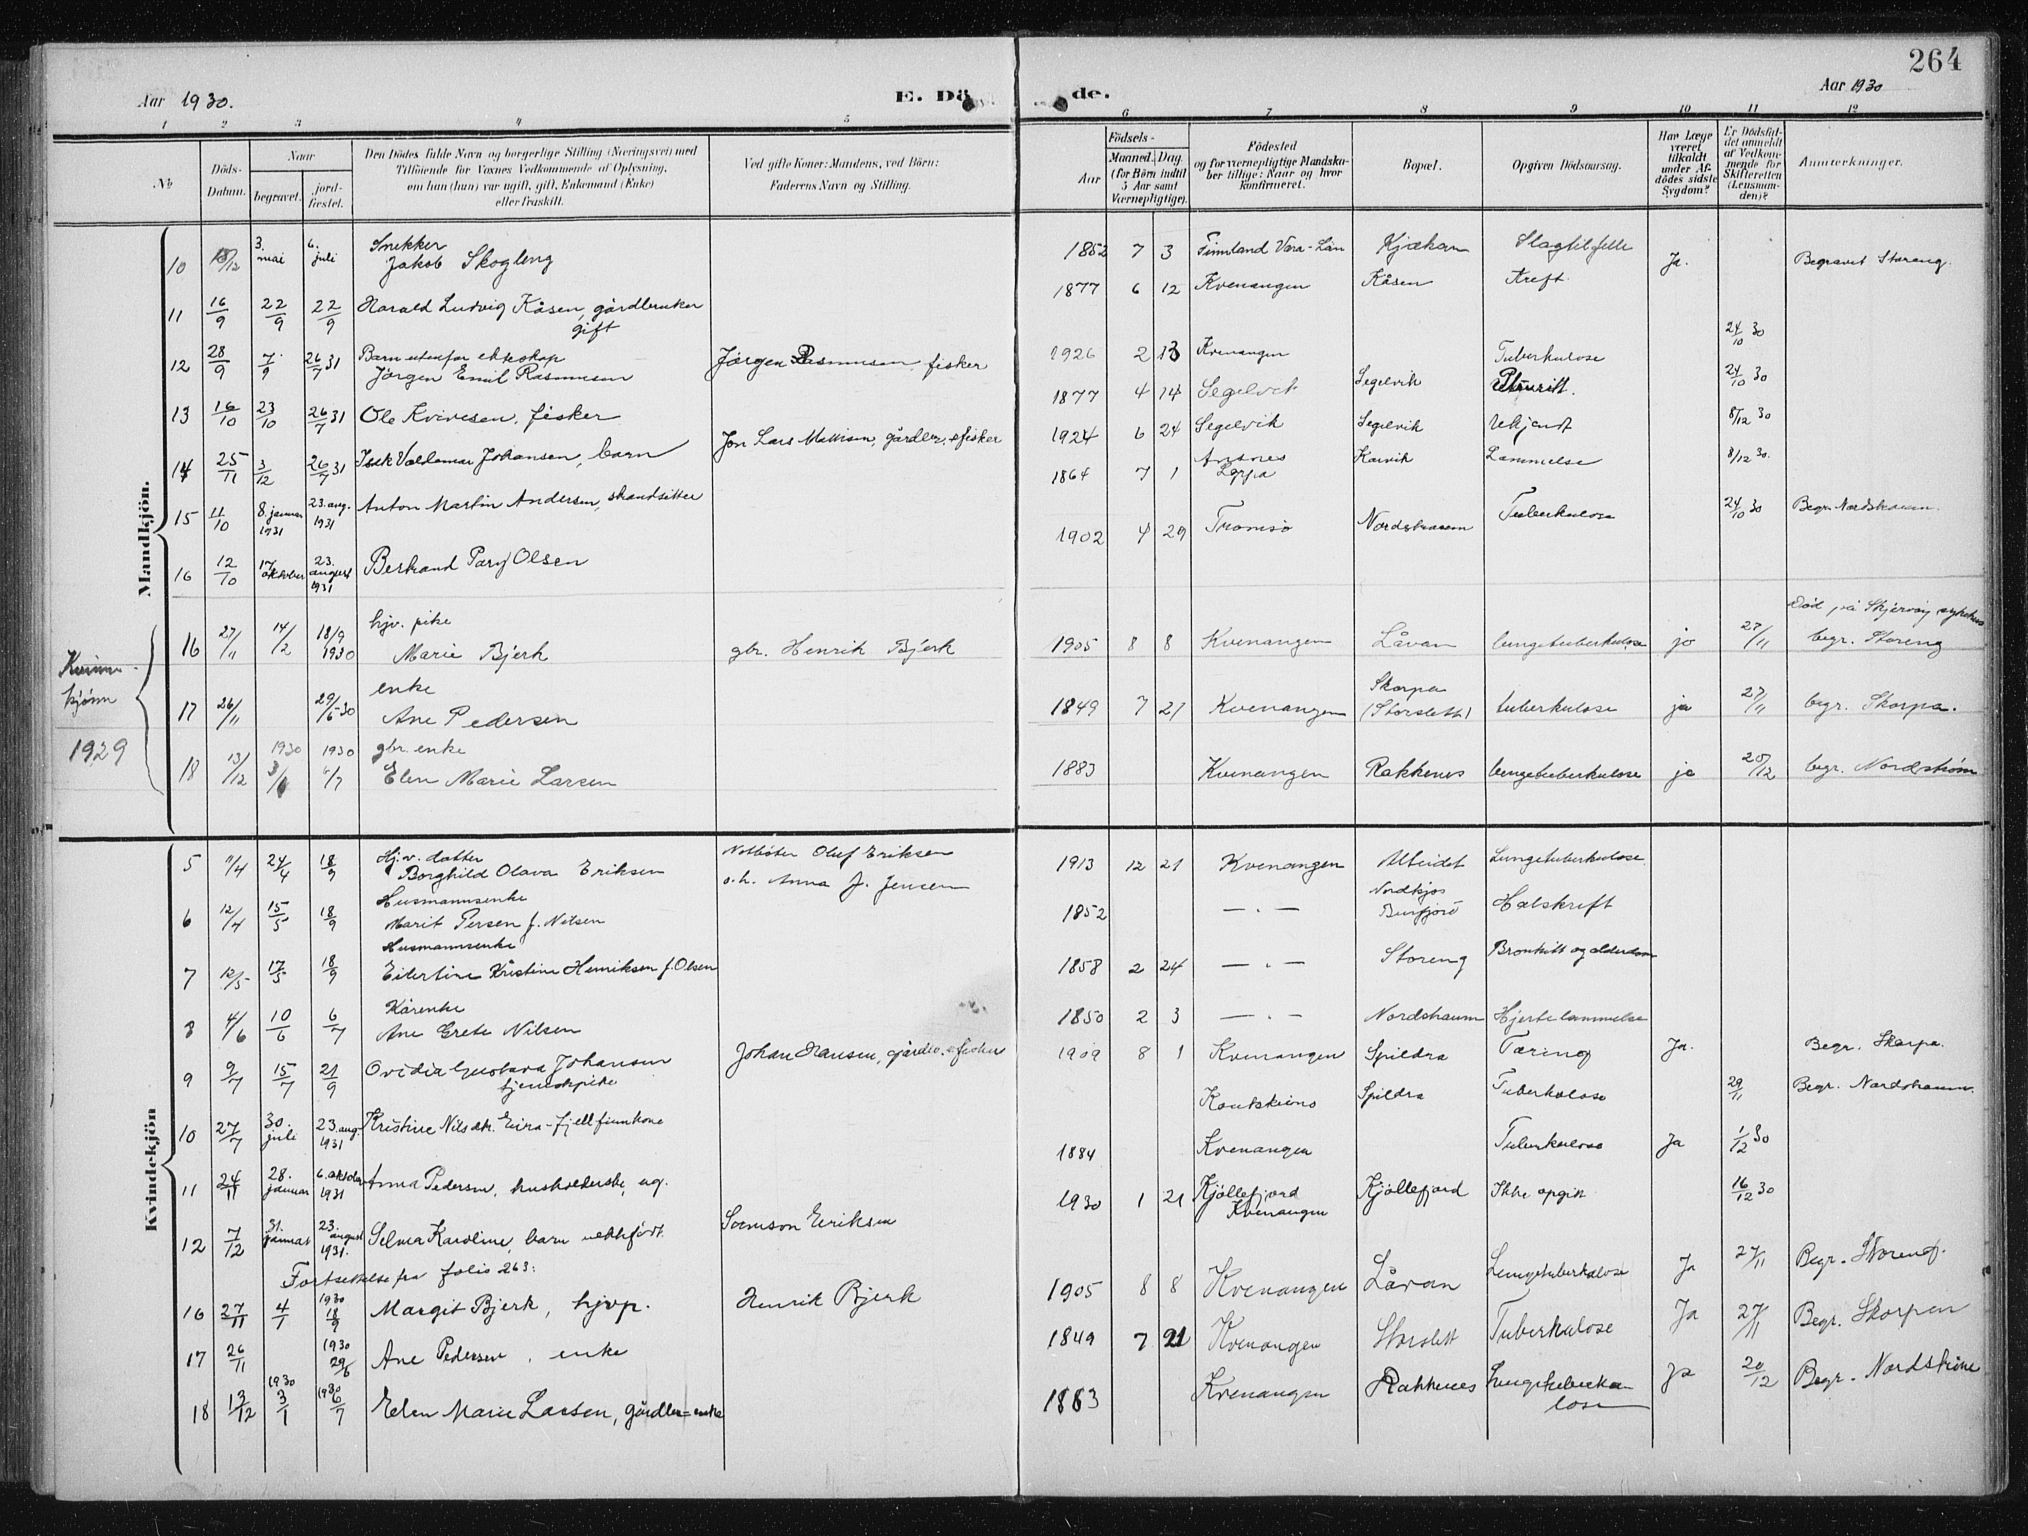 264
Aar 1930.
E. Dö de.
Aar 1930
1 2 3 4 5 6 7 8 9 10 11 12
No
Döds-Datum.
Naar
begravet.
jord-fæstet.
Den Dödes fulde Navn og borgerlige Stilling (Næringsvei) med
Tilföiende for Voxnes Vedkommende af Oplysning,
om han (hun) var ugift, gift, Enkemand (Enke)
eller fraskilt.
Ved gifte Koner: Mandens, ved Börn:
Faderens Navn og Stilling.
Födsels-
Aar
Maaned. Dag
(for Börn indtil
5 Aar samt
Værnepligtige).
Födested
og for værnepligtige Mandska-
ber tillige: Naar og hvor
konfirmeret.
Bopæl.
Opgiven Dödsaarsag.
Har Læge
været
tilkaldt
under Af-
dödes sidste
Sygdom?
Er Dödsfal-
det anmeldt
af Vedkom-
mende for
Skifteretten
(Lensman-
den)?
Anmerkninger.
Mandkjön.
10 3. mai 6. juli Snekker Jakob Skogleng 1852 7 3 Finnland Vara-Län Kjækan Slagtilfelle Ja. Begravet Storeng.
11 16/9 22/9 22/9 Harald Ludvig Kåsen, gårdbruker gift 1877 6 12 Kvenangen Kåsen Kreft
12 28/9 7/9 26/7 31 Barn utenfor ekteskap Jörgen Emil Rasmussen Jörgen Rasmussen, fisker 1926 2 13 Kvenangen Tuberkulose 24/10 30
13 16/10 23/10 26/7 31 Ole Kvivesen, fisker 1877 4 14 Segelvik Segelvik 24/10 30
14 25/11 3/12 26/7 31 Isek Valdemar Johansen, barn Jon Lars Mathisen, gårdbr. & fisker 1924 6 24 Segelvik Segelvik Ukjendt 8/12 30
15 11/10 8. januar 1931 23. aug. 1931 Anton Martin Andersen, strandsitter 1864 7 1 Loppa Karvik Lammelse 8/12 30.
16 12/10 17 oktober 23. august 1931 Berhand Pary Olsen 1902 4 29 Tromsö Nordstraum Tuberkulose 24/10 30 Begr. Nordstraum.
Kvinne-
kjønn
1929
16 27/11 14/2 18/9 1930 hjv. pike Marie Bjerk gbr. Henrik Bjerk 1905 8 8 Kvenangen Låvan lungetuberkulose ja 27/11 Död på Skjervöy sykehus begr. Storeng
17 26/11 29/6-30 enke Ane Pedersen 1849 7 21 Kvenangen Skorpa (Storslett) tuberkulose ja 27/11 begr. Skorpa.
18 13/12 1930 3/1 1930 6/7 gbr. enke Elen Marie Larsen 1883 Kvenangen Rakkenes lungetuberkulose ja 20/12 begr. Nordstrøm
Kvindekjön
5 11/4 24/4 18/9 Hj.v. datter Borghild Olava Eriksen Notbøter Oluf Eriksen o.h. Anna J. Jensen 1913 12 21 Kvenangen Alteidet Lungetuberkulose
6 12/4 15/5 18/9 Husmannsenke Marit Persen f. Nilsen 1852 — . — Nordkjos Burfjord Halskreft
7 12/5 17/5 18/9 Husmannsenke Edertine Kristine Henriksen f. Olsen 1858 2 24 — . — Storeng Bronkitt og alderdom
8 4/6 10/6 6/7 Kårenke Ane Grete Nilsen 1850 2 3 — . — Nordstraum Hjertelammelse
9 9/7 15/7 21/9 Ovidia Gustava Johansen tjenestepike Johan Hansen, gårdbr. & fisker 1909 8 1 Kvenangen Spildra Tæring Ja. Begr. Skorpa.
10 27/7 30. juli 23. aug. 1931 Kristine Nilsdtr. Eira - fjellfinnkone Kautokeino Spildra Tuberkulose 29/11 Begr. Nordstraum.
11 24/11 28. januar 6. oktober 1931 Anna Pedersen, husholderske, ug. 1884 Kvenangen Tuberkulose Ja 1/12 30
12 7/12 31. januar 23. august 1931. Selma Karoline, barn uekte född. Svenson Eriksen 1930 1 21 Kjöllefjord Kvenangen Kjöllefjord Ikke opgitt 16/12 30
Fortsettelse fra folio 263:
16 27/11 4/1 1930 18/9 Margit Bjerk, hjvp. Henrik Bjerk 1905 8 8 Kvenangen Låvan Lungetuberkulose Ja 27/11 Begr. Storeng.
17 26/11 1930 29/6 Ane Pedersen, enke 1849 7 21 Kvenangen Storslett Tuberkulose Ja 27/11 Begr. Skorpen
18 13/12 1930 3/1 1930 6/7 Elen Marie Larsen, gårdbr-enke 1883 Kvenangen Rakkenes Lungetuberkulose ja 20/12 Begr. Nordströme